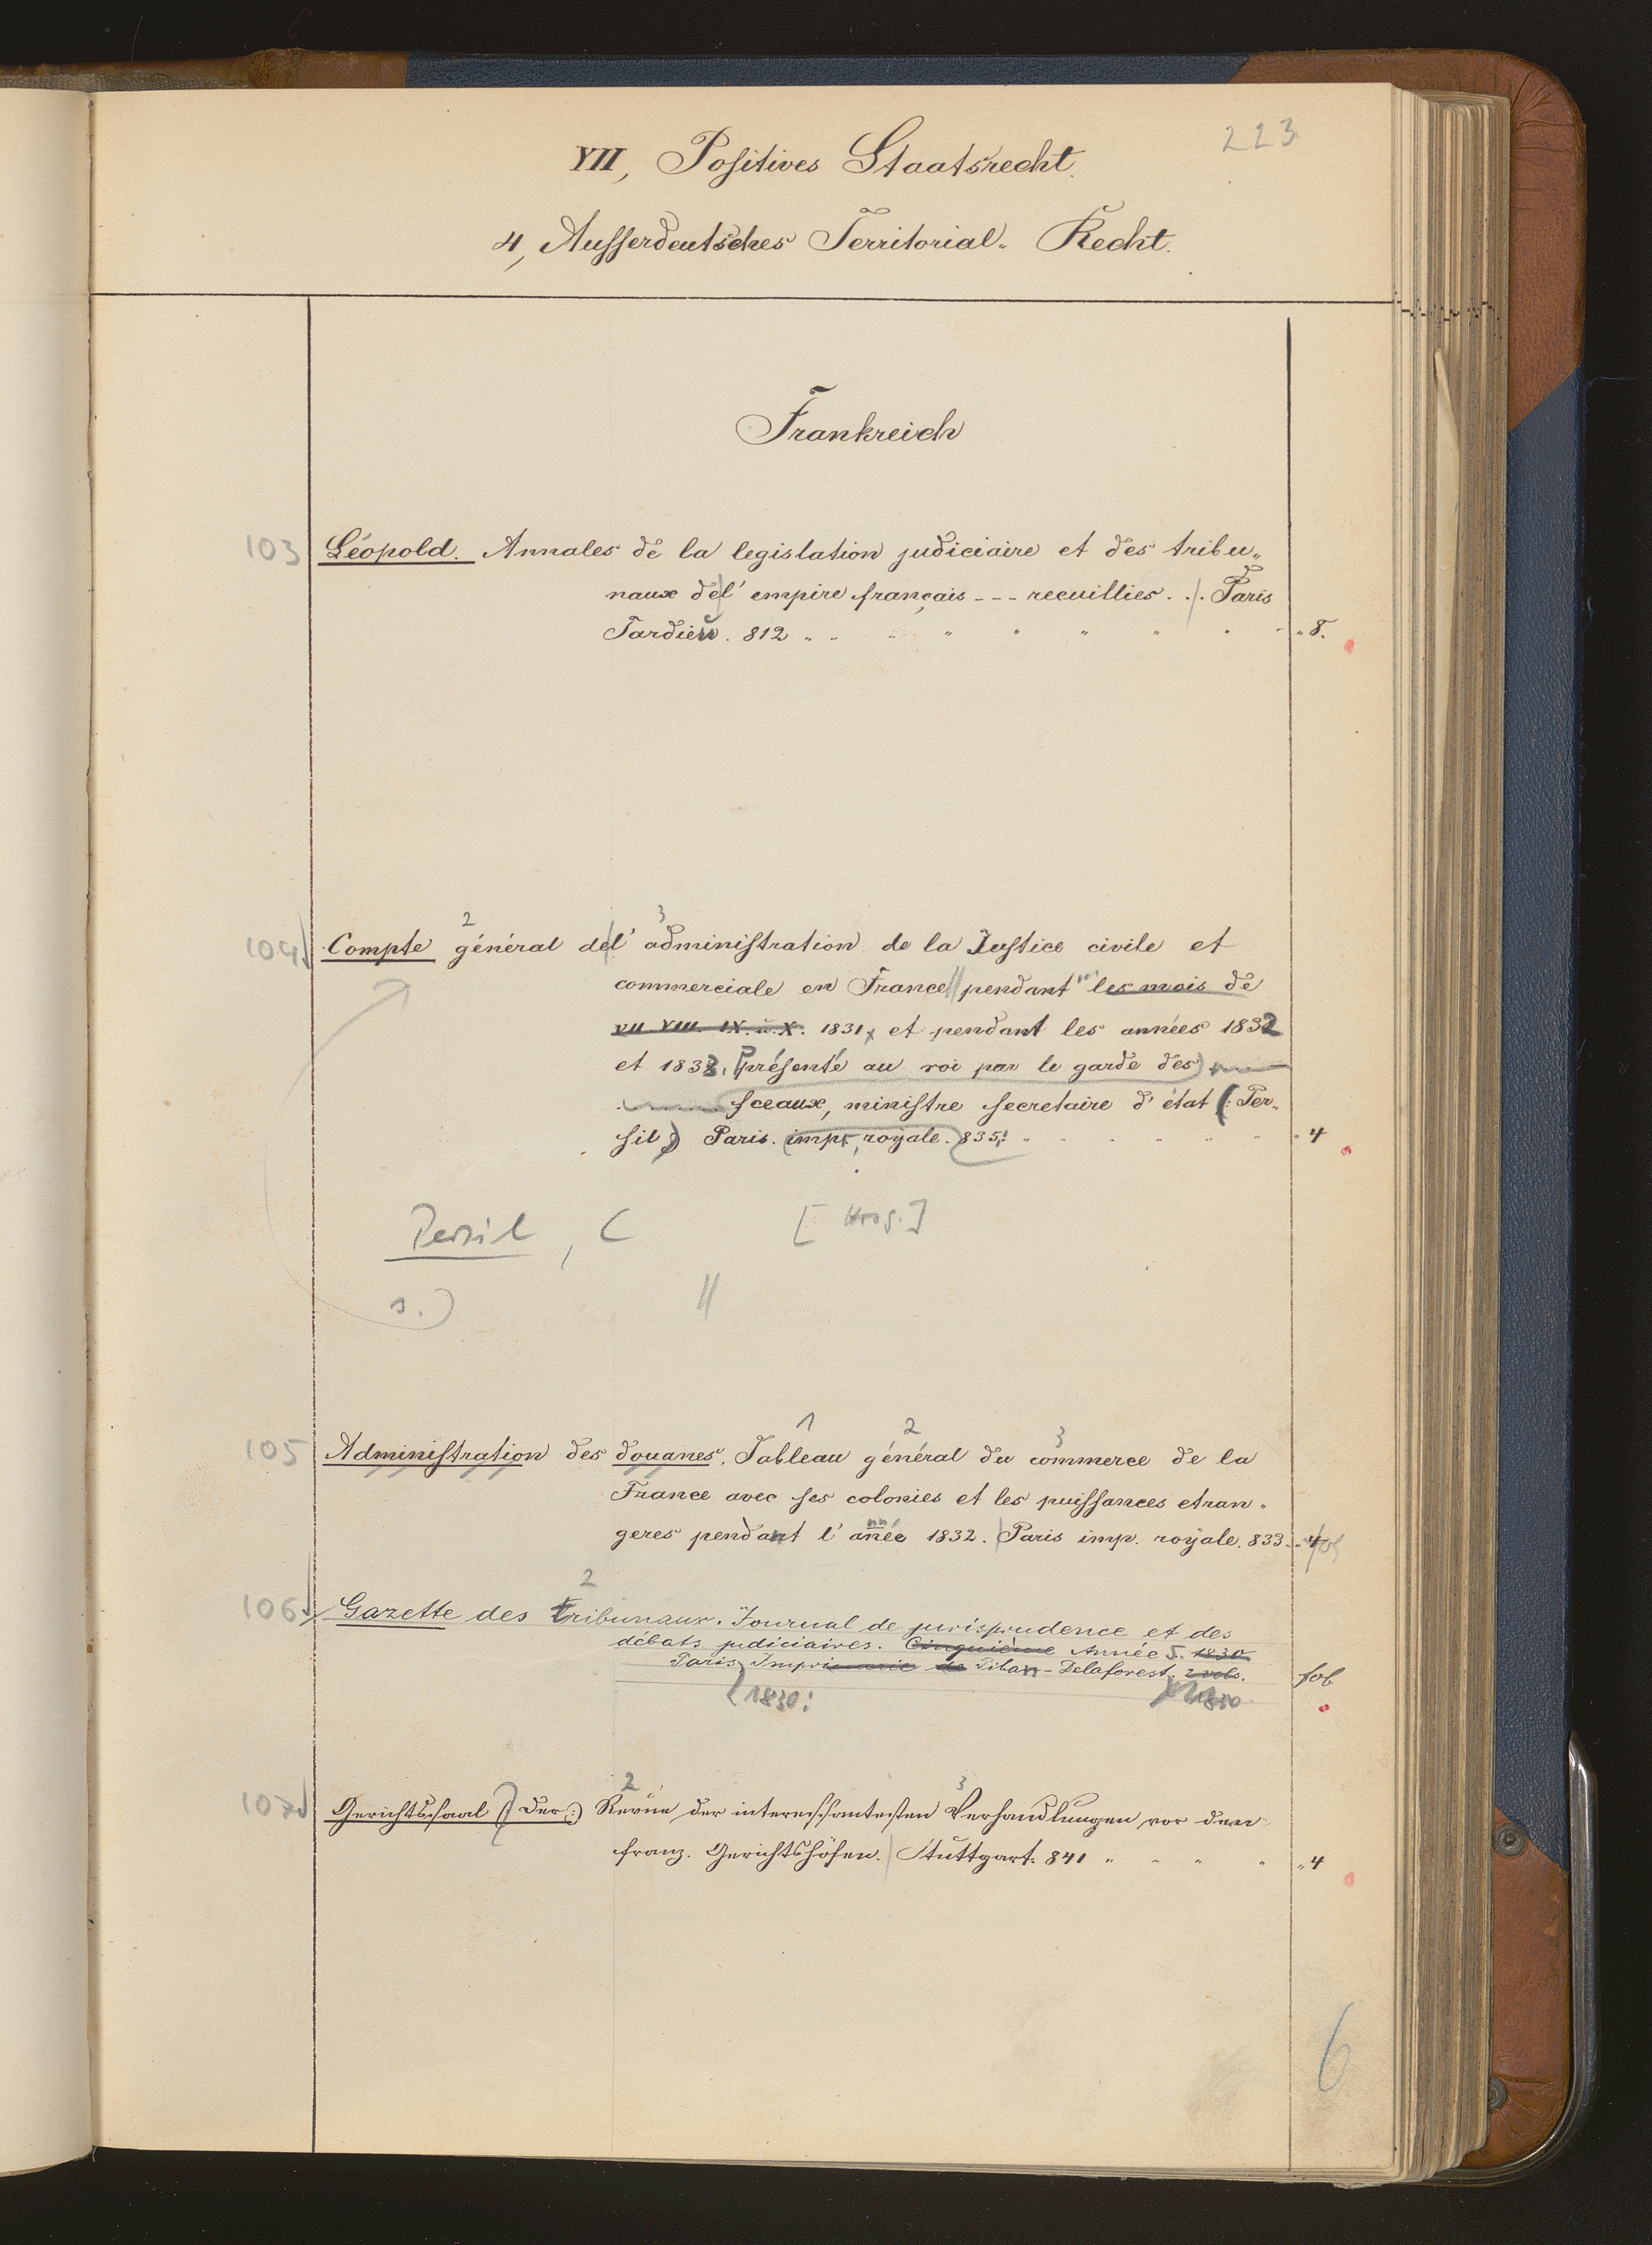 223
VII, Positives Staatsrecht.
4, Ausserdeutsches Territorial-Recht.
Frankreich
103 Léopold. Annales de la legislation judiciaire et des tribu-
naux de l'empire français --- recuillies . . Paris
Tardieu. 812 " 8.
2 3
104 Compte général de l'administration de la Justice civile et
commerciale en France pendant les mois de
VII VIII. IX. u. X. 1831, et pendant les années 1832
et 1833. présenté au roi par le garde des
sceaux, ministre secretaire d'état (: Per-
sil :) Paris. impr. royale. 835. " 4
Persil, C [Hrsg.]
s.) //
1 2 3
105 Administration des douanes. Tableau général du commerce de la
France avec ses colonies et les puissances etran-
geres pendant l'année 1832. Paris imp. royale. 833 " 4 fol
2
106 Gazette des tribunaux. Journal de jurisprudence et des
débats judiciaires. Cinquième Année 5. 1830.
Paris, Imprimerie de Pihan-Delaforest. 2 vols. fol
1830: 1830
2 3
107 Gerichtssaal (: Der :) Revüe der interessantesten Verhandlungen vor den
franz. Gerichtshöfen. Stuttgart. 841 " 4
6